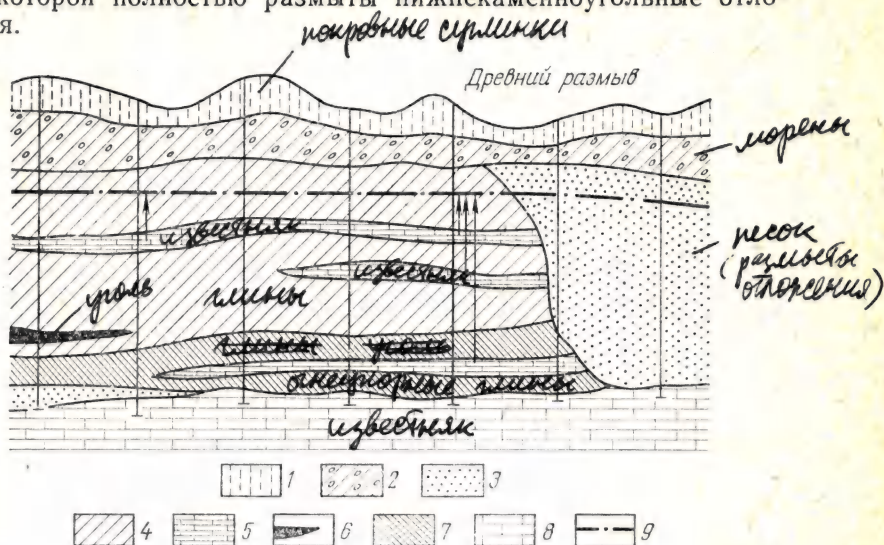 которой полностью размыты нижнекаменноугольные отло-
я.
покровные суглинки
Древний размыв
морены
песок
(размыты
отложения)
известняк
известняк
уголь
глины
глины уголь
огнеупорные глины
известняк
1 2 3
4 5 6 7 8 9